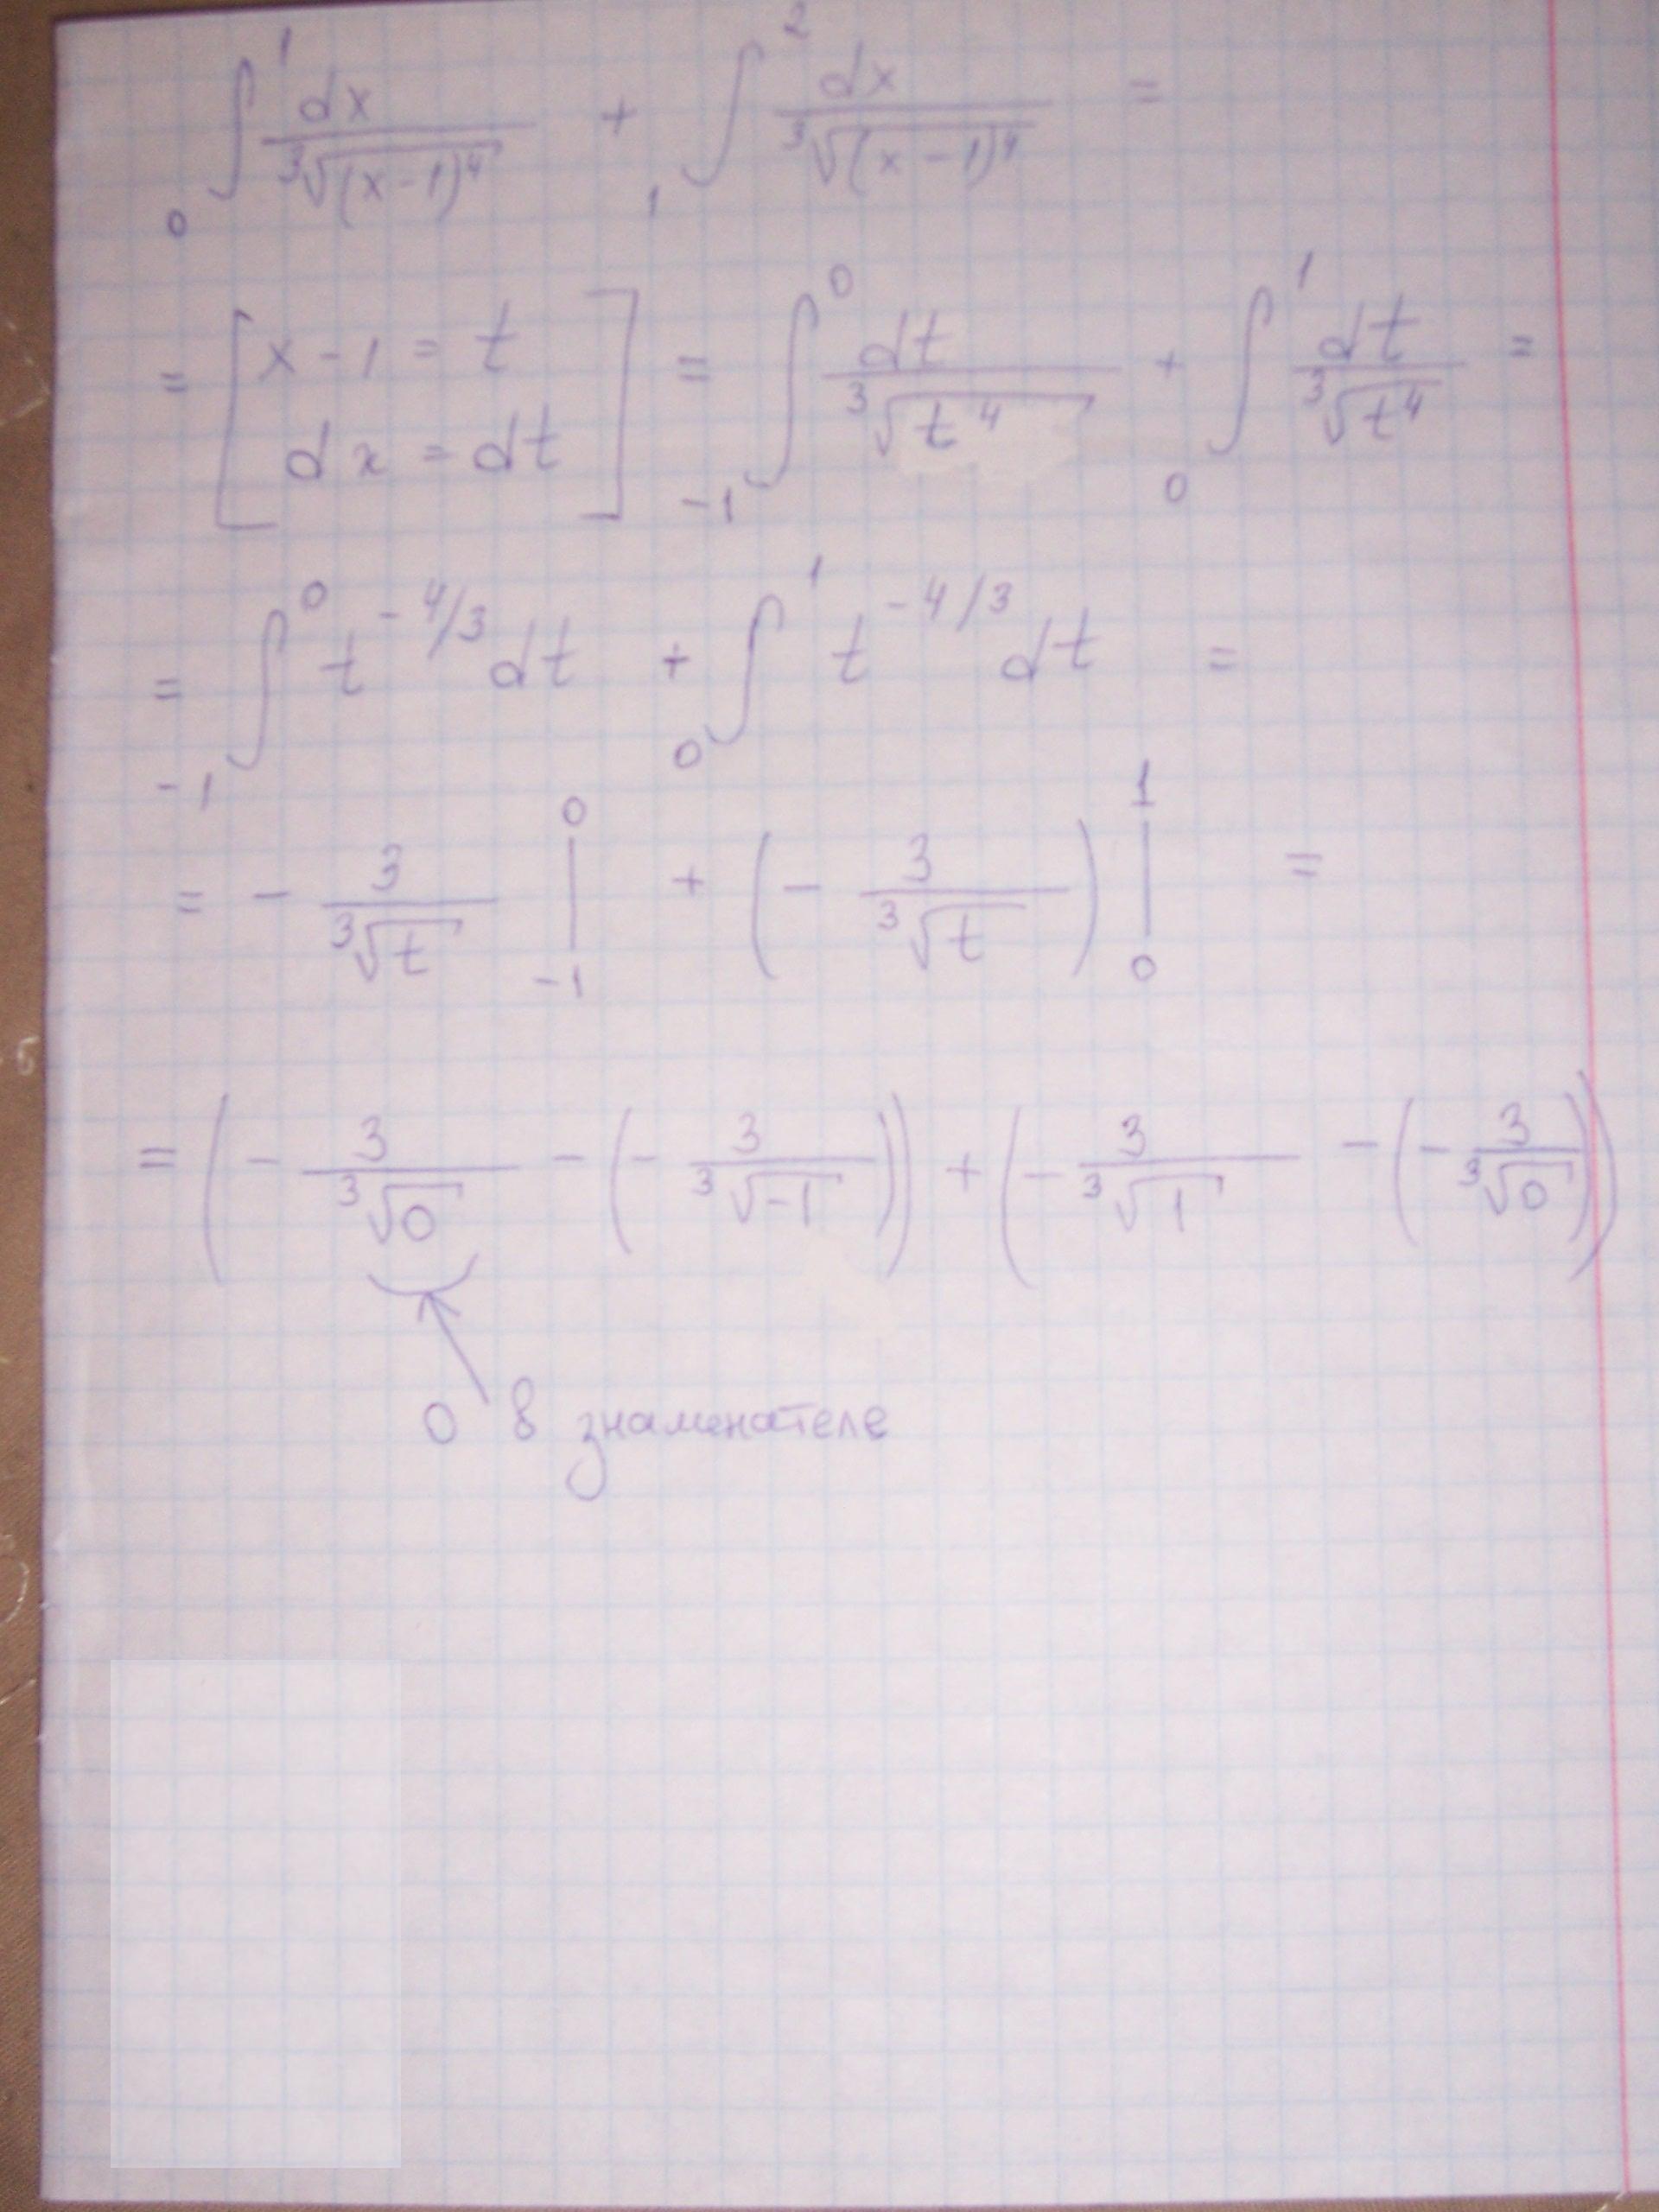 ∫₀¹ dx/∛((x-1)⁴) + ∫₁² dx/∛((x-1)⁴) =
= [x-1 = t
dx = dt] = ∫₋₁⁰ dt/∛(t⁴) + ∫₀¹ dt/∛(t⁴) =
= ∫₋₁⁰ t^(-4/3) dt + ∫₀¹ t^(-4/3) dt =
= - 3/∛t |₋₁⁰ + (- 3/∛t) |₀¹ =
= (- 3/∛0 - (- 3/∛-1)) + (- 3/∛1 - (- 3/∛0))
0 в знаменателе